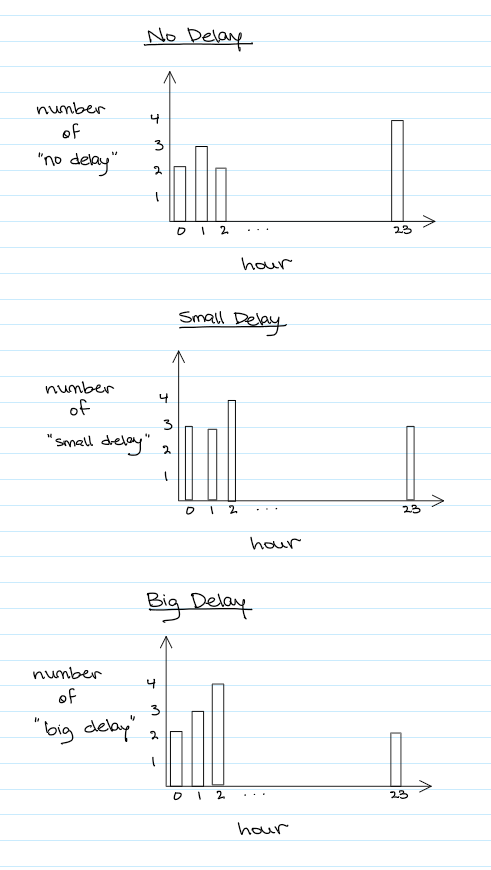 No Delay
number
of
"no delay"
4
3
2
1
0 1 2 ... 23
hour
Small Delay
number
of
"small delay"
4
3
2
1
0 1 2 ... 23
hour
Big Delay
number
of
"big delay"
4
3
2
1
0 1 2 ... 23
hour